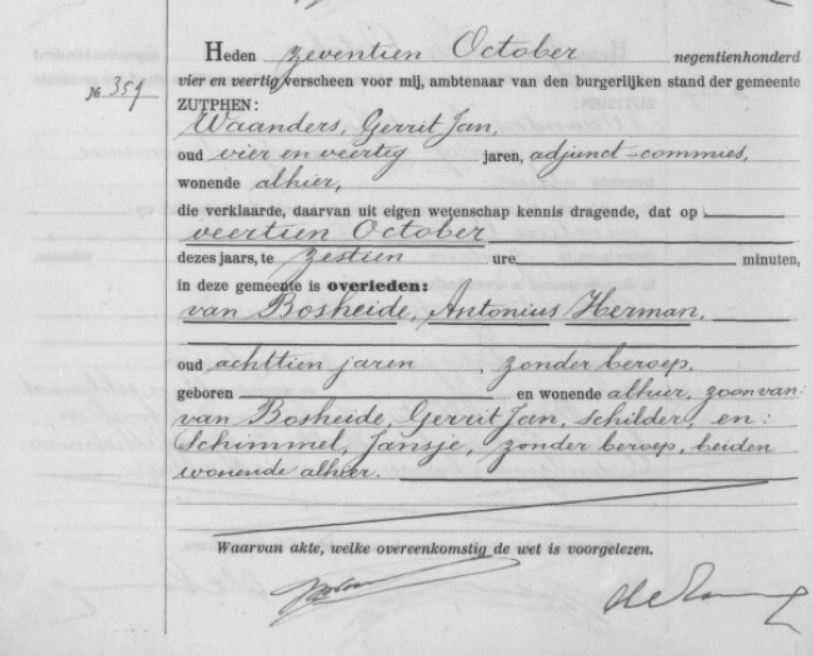 Heden zeventien October negentienhonderd
vier en veertig verscheen voor mij, ambtenaar van den burgerlijken stand der gemeente
№ 359
ZUTPHEN:
Waanders, Gerrit Jan,
oud vier en veertig jaren, adjunct-commies,
wonende alhier,
die verklaarde, daarvan uit eigen wetenschap kennis dragende, dat op
veertien October
dezes jaars, te zestien ure minuten,
in deze gemeente is overleden:
van Bosheide, Antonius Herman,
oud achttien jaren, zonder beroep,
geboren en wonende alhier, zoon van:
van Bosheide, Gerrit Jan, schilder, en:
Schimmel, Jansje, zonder beroep, beiden
wonende alhier.
Waarvan akte, welke overeenkomstig de wet is voorgelezen.